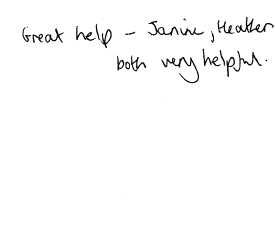 Great help - Janine, Heather
both very helpful.